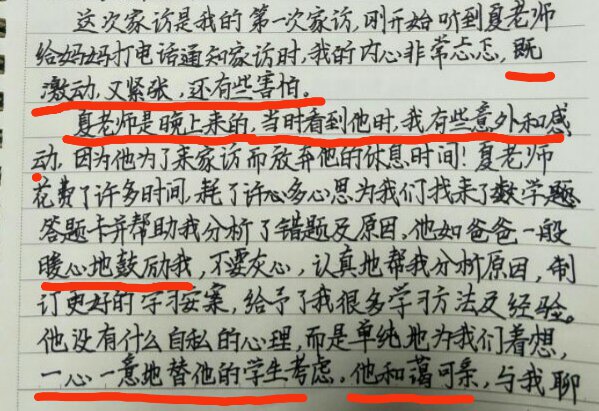 这次家访是我的第一次家访，刚开始听到夏老师
给妈妈打电话通知家访时，我的内心非常忐忑，既
激动，又紧张，还有些害怕。
夏老师是晚上来的，当时看到他时，我有些意外和感
动，因为他为了来家访而放弃他的休息时间！夏老师
花费了许多时间，耗了许心多心思为我们找来了数学题
答题卡并帮助我分析了错题及原因，他如爸爸一般
暖心地鼓励我，不要灰心，认真地帮我分析原因，制
订更好的学习方案，给予了我很多学习方法及经验。
他没有什么自私的心理，而是单纯地为我们着想，
一心一意地替他的学生考虑。他和蔼可亲，与我聊